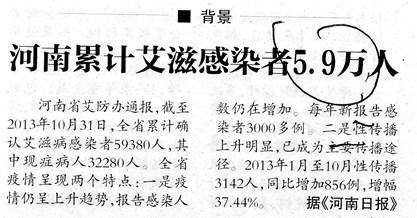 ■ 背景
河南累计艾滋感染者5.9万人
河南省艾防办通报，截至
2013年10月31日，全省累计确
认艾滋病感染者59380人，其
中现症病人32280人。全省
疫情呈现两个特点：一是疫
情仍呈上升趋势，报告感染人
数仍在增加。每年新报告感
染者3000多例。二是性传播
上升明显，已成为主要传播途
径。2013年1月至10月性传播
3142人，同比增加856例，增幅
37.44%。 据《河南日报》